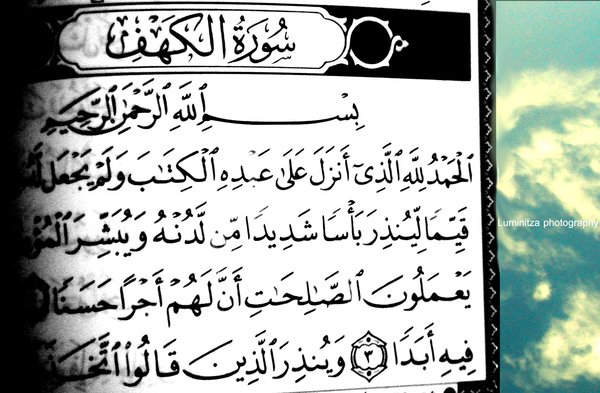 سُورَةُ الْكَهْفِ
بِسْمِ اللَّهِ الرَّحْمَٰنِ الرَّحِيمِ
الْحَمْدُ لِلَّهِ الَّذِي أَنزَلَ عَلَىٰ عَبْدِهِ الْكِتَٰبَ وَلَمْ يَجْعَل
قَيِّمًا لِّيُنذِرَ بَأْسًا شَدِيدًا مِّن لَّدُنْهُ وَيُبَشِّرَ
يَعْمَلُونَ الصَّٰلِحَٰتِ أَنَّ لَهُمْ أَجْرًا حَسَنًا
فِيهِ أَبَدًا ٣ وَيُنذِرَ الَّذِينَ قَالُوا
Luminitza photography